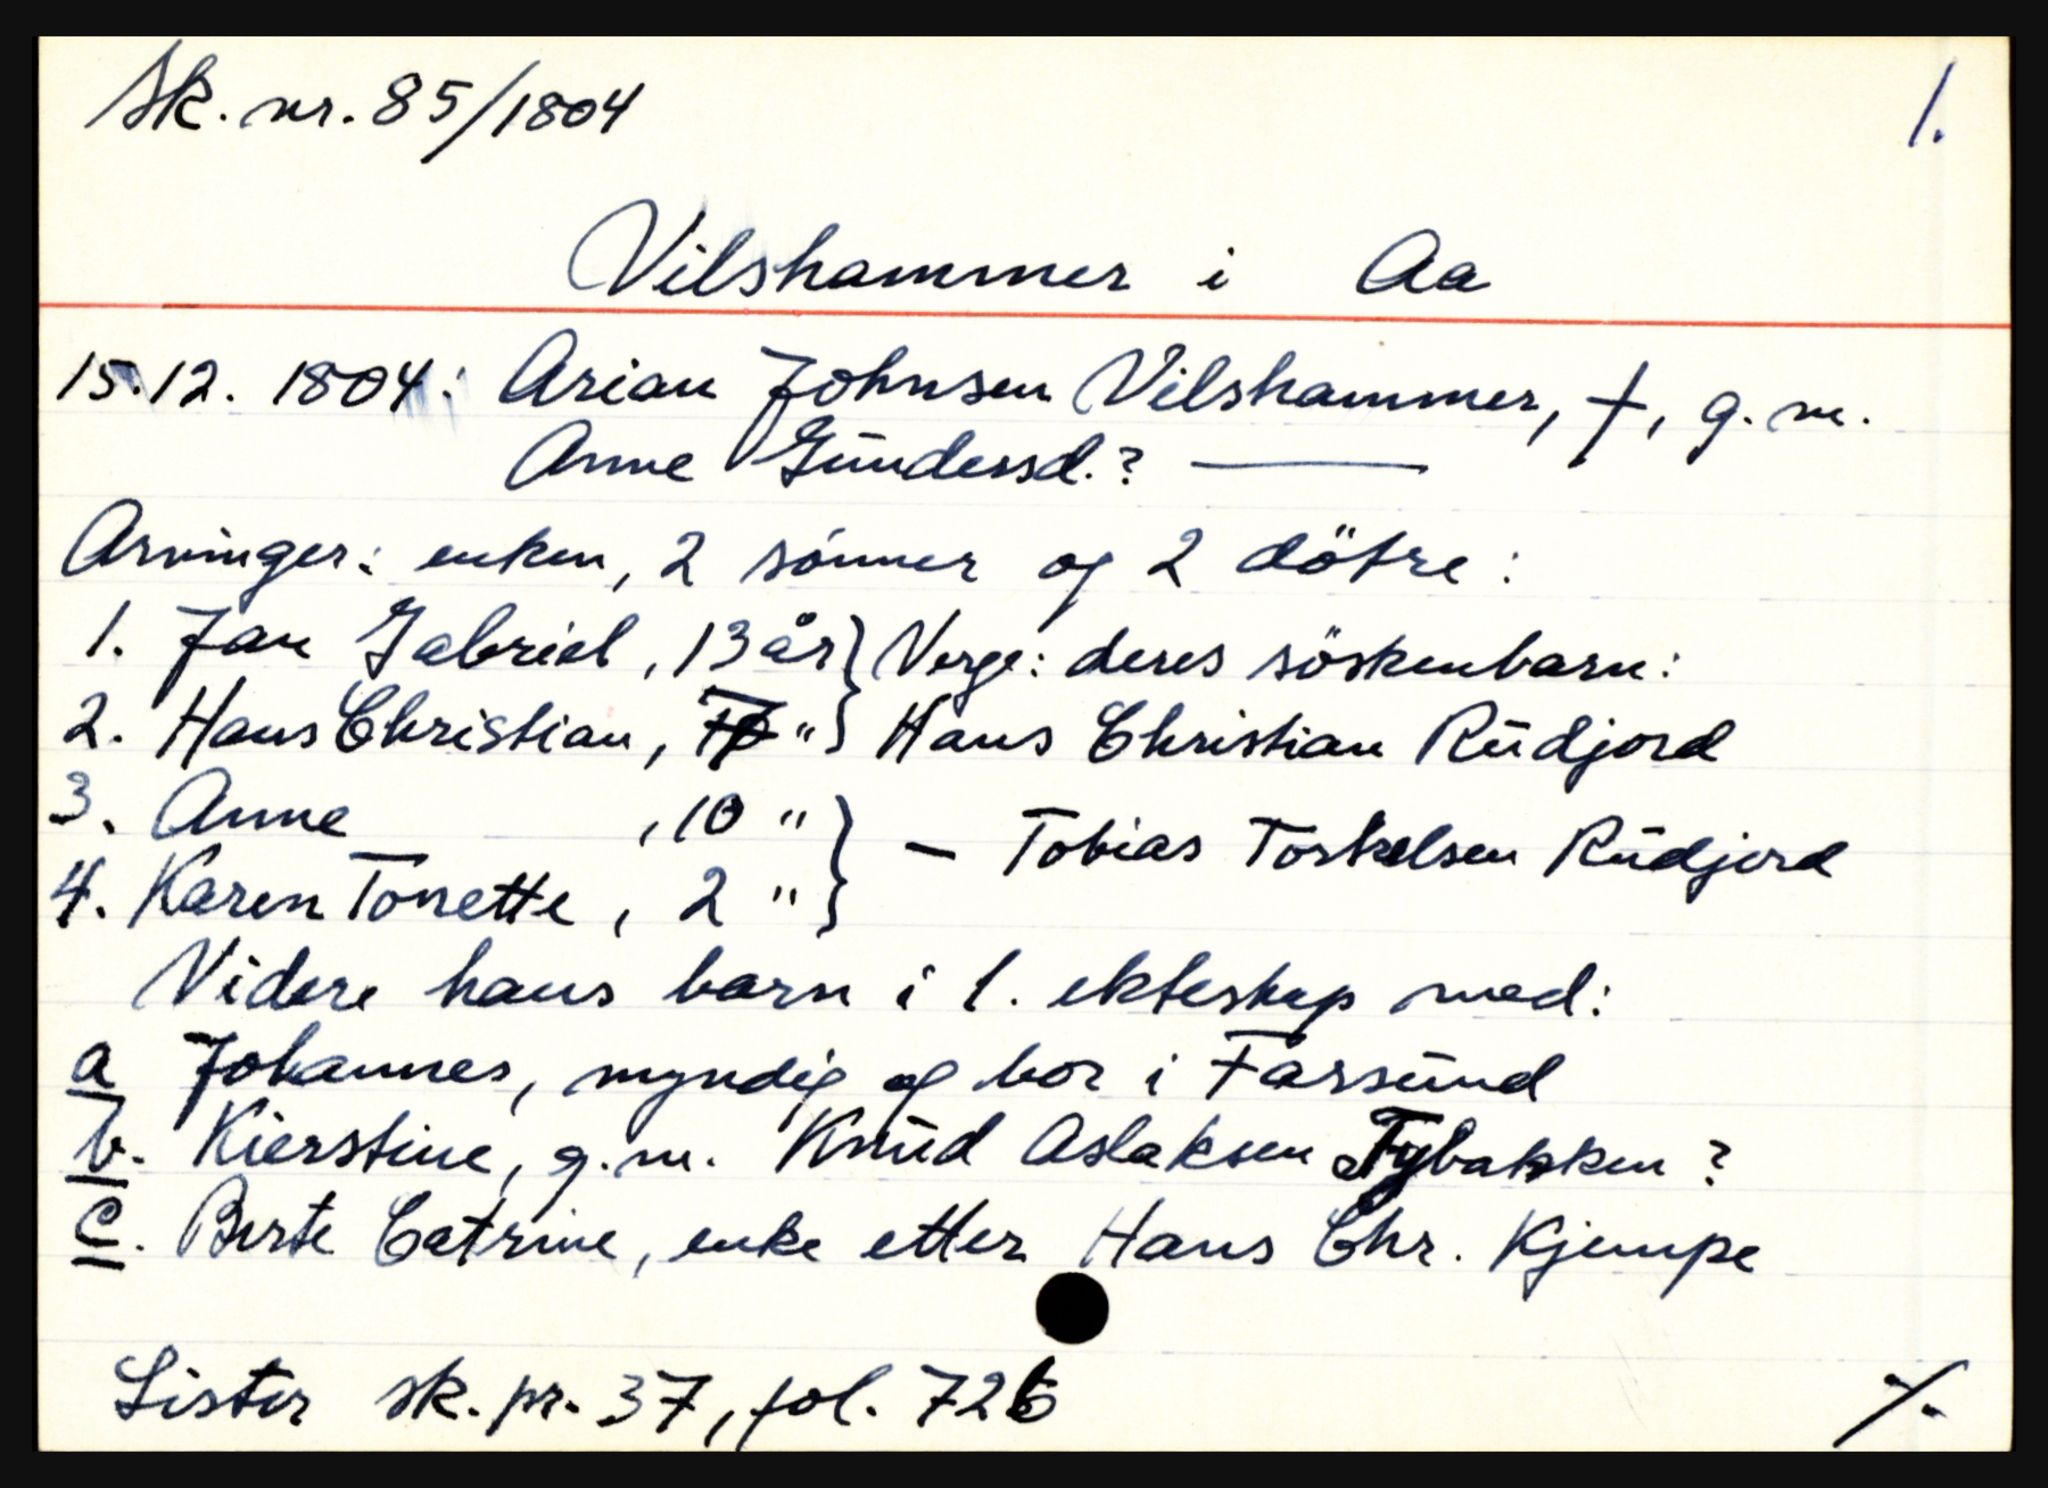 Sk. nr. 85/1804
1.
Vilshammer i Aa
15.12. 1804: Arian Johnsen Vilshammer, †, g. m.
Anne Gundersd.? —
Arvinger: enken, 2 sönner og 2 dötre:
1. Jan Gabriel, 13 år } Verge: deres söskenbarn:
2. Hans Christian, 7 " } Hans Christian Rudjord
3. Anne , 10 " } — Tobias Torkelsen Rudjord
4. Karen Tonette, 2 " }
Videre hans barn i 1. ekteskap med:
a Johannes, myndig og bor i Farsund
b. Kierstine, g.m. Knud Aslaksen Tybakken ?
c. Berte Catrine, enke etter Hans Chr. Kjempe
Lister sk. pr. 37, fol. 72b
./.